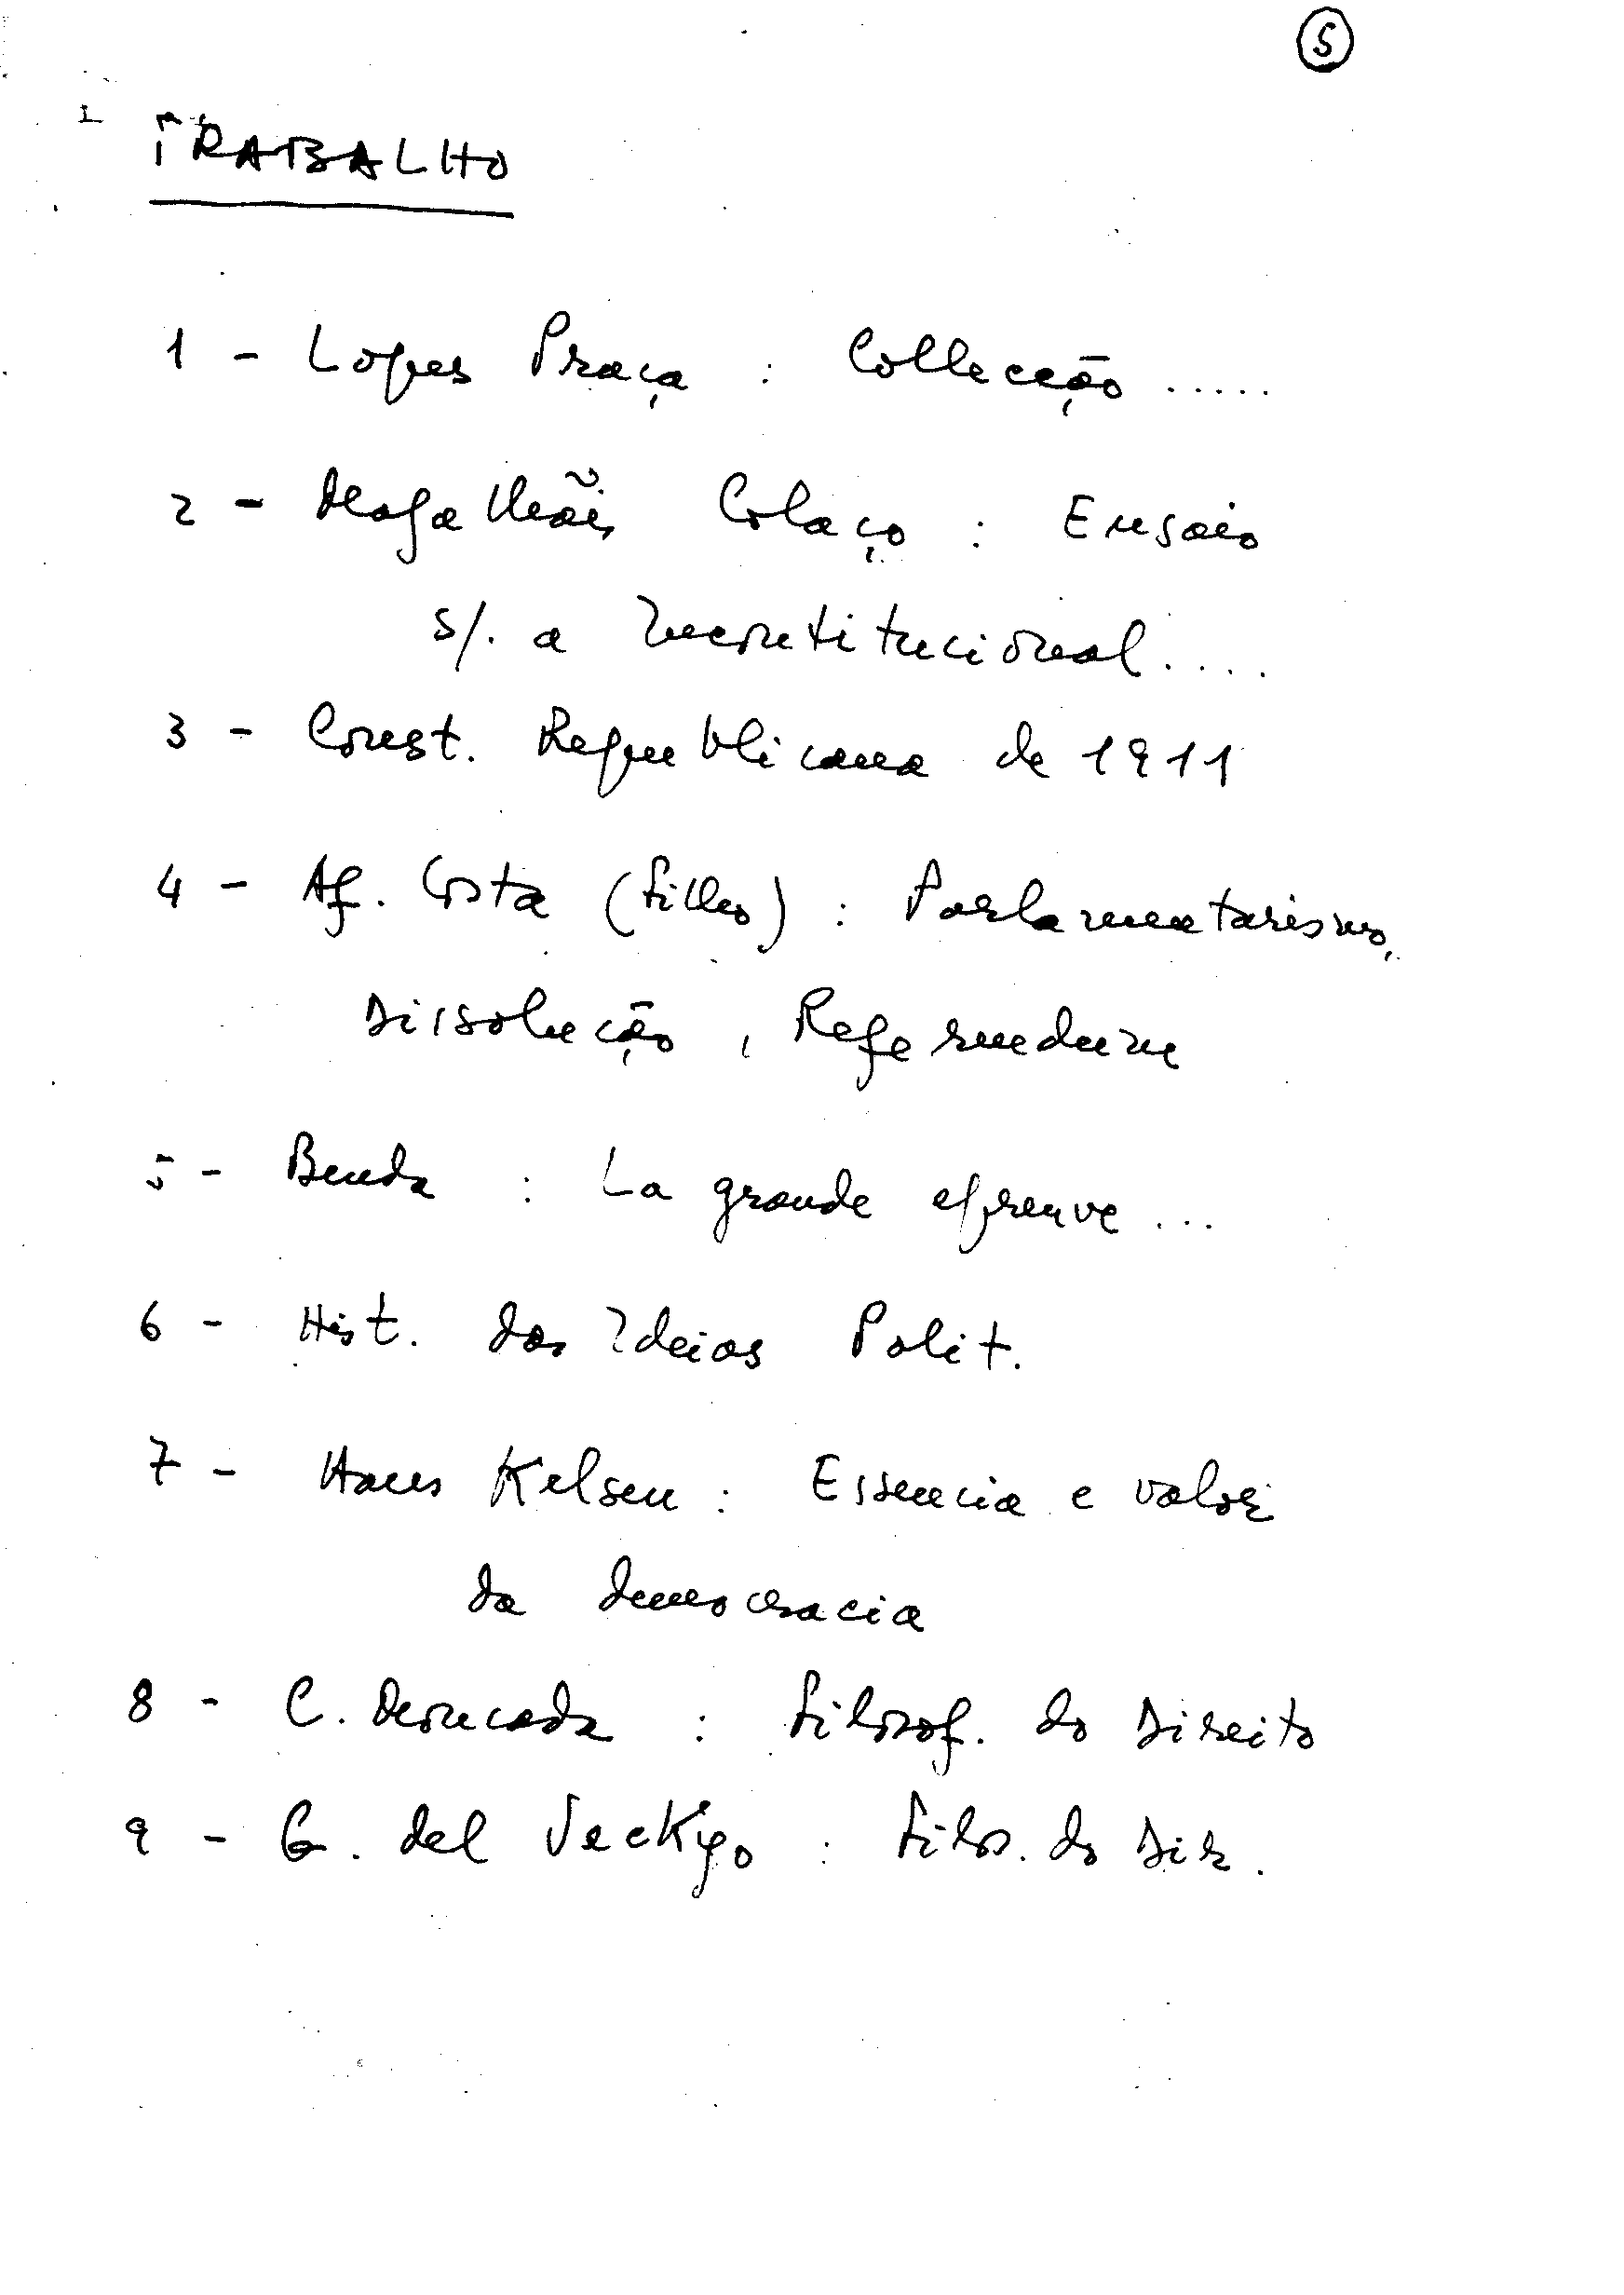 5
TRABALHO
1 - Lopes Praça : Collecção .....
2 - Magalhãis Colaço : Ensaio
s/. a Inconstitucional....
3 - Const. Republicana de 1911
4 - Af. Costa (filho) : Parlamentarismo,
Dissolução, Referendum
5 - Benda : La grande epreuve ...
6 - Hist. das Ideias Polit.
7 - Hans Kelsen : Essencia e valor
da democracia
8 - C. Moncada : Filosof. do Direito
9 - G. del Veckyo : Filos. do Dir.